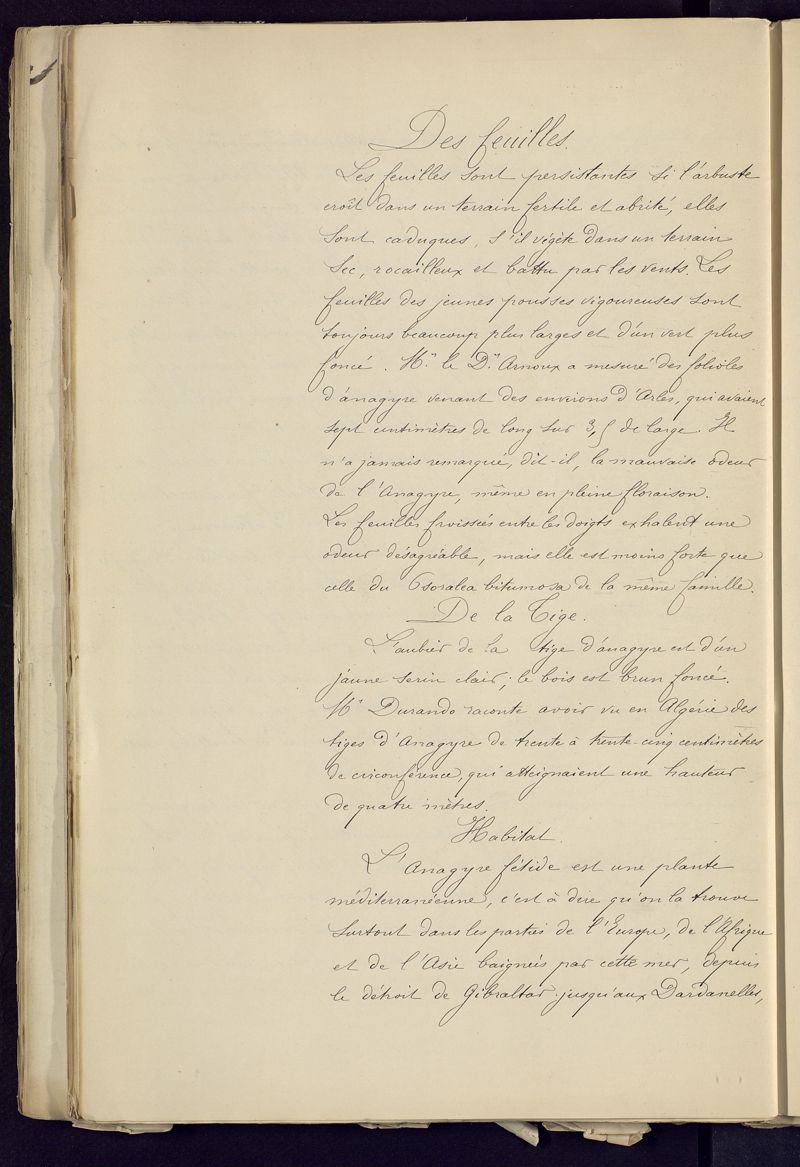 Des feuilles.
Les feuilles sont persistantes si l'arbuste
croît dans un terrain fertile et abrité, elles
sont caduques, s'il végète dans un terrain
sec, rocailleux et battu par les vents. Les
feuilles des jeunes pousses vigoureuses sont
toujours beaucoup plus larges et d'un vert plus
foncé. Mr. le Dr. Arnoux a mesuré des folioles
d'anagyre venant des environs d'Arles, qui avaient
sept centimètres de long sur 3,5 de large. Il
n'a jamais remarqué, dit-il, la mauvaise odeur
de l'Anagyre, même en pleine floraison.
Les feuilles froissées entre les doigts exhalent une
odeur désagréable, mais elle est moins forte que
celle du Psoralea bitumosa de la même famille.
De la Tige.
L'aubier de la tige d'anagyre est d'un
jaune serin clair; le bois est brun foncé.
Mr Durando raconte avoir vu en Algérie des
tiges d'Anagyre de trente à trente-cinq centimètres
de circonférence, qui atteignaient une hauteur
de quatre mètres.
Habitat.
L'Anagyre fétide est une plante
méditerranéenne, c'est à dire qu'on la trouve
surtout dans les parties de l'Europe, de l'Afrique
et de l'Asie baignées par cette mer, depuis
le détroit de Gibraltar jusqu'aux Dardanelles,